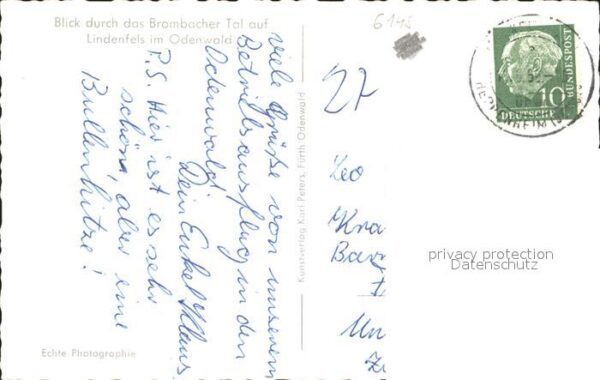 Blick durch das Brombacher Tal auf
Lindenfels im Odenwald
6145
viele Grüße von unserem
Betriebsausflug in den
Odenwald
Dein Enkel Klaus
P.S. Hier ist es sehr
schön, aber eine
Bullenhitze!
Echte Photographie
Kunstverlag Karl Peters, Fürth Odenwald
27
Leo
Kra
DEUTSCHE
BUNDESPOST
10
privacy protection
Datenschutz